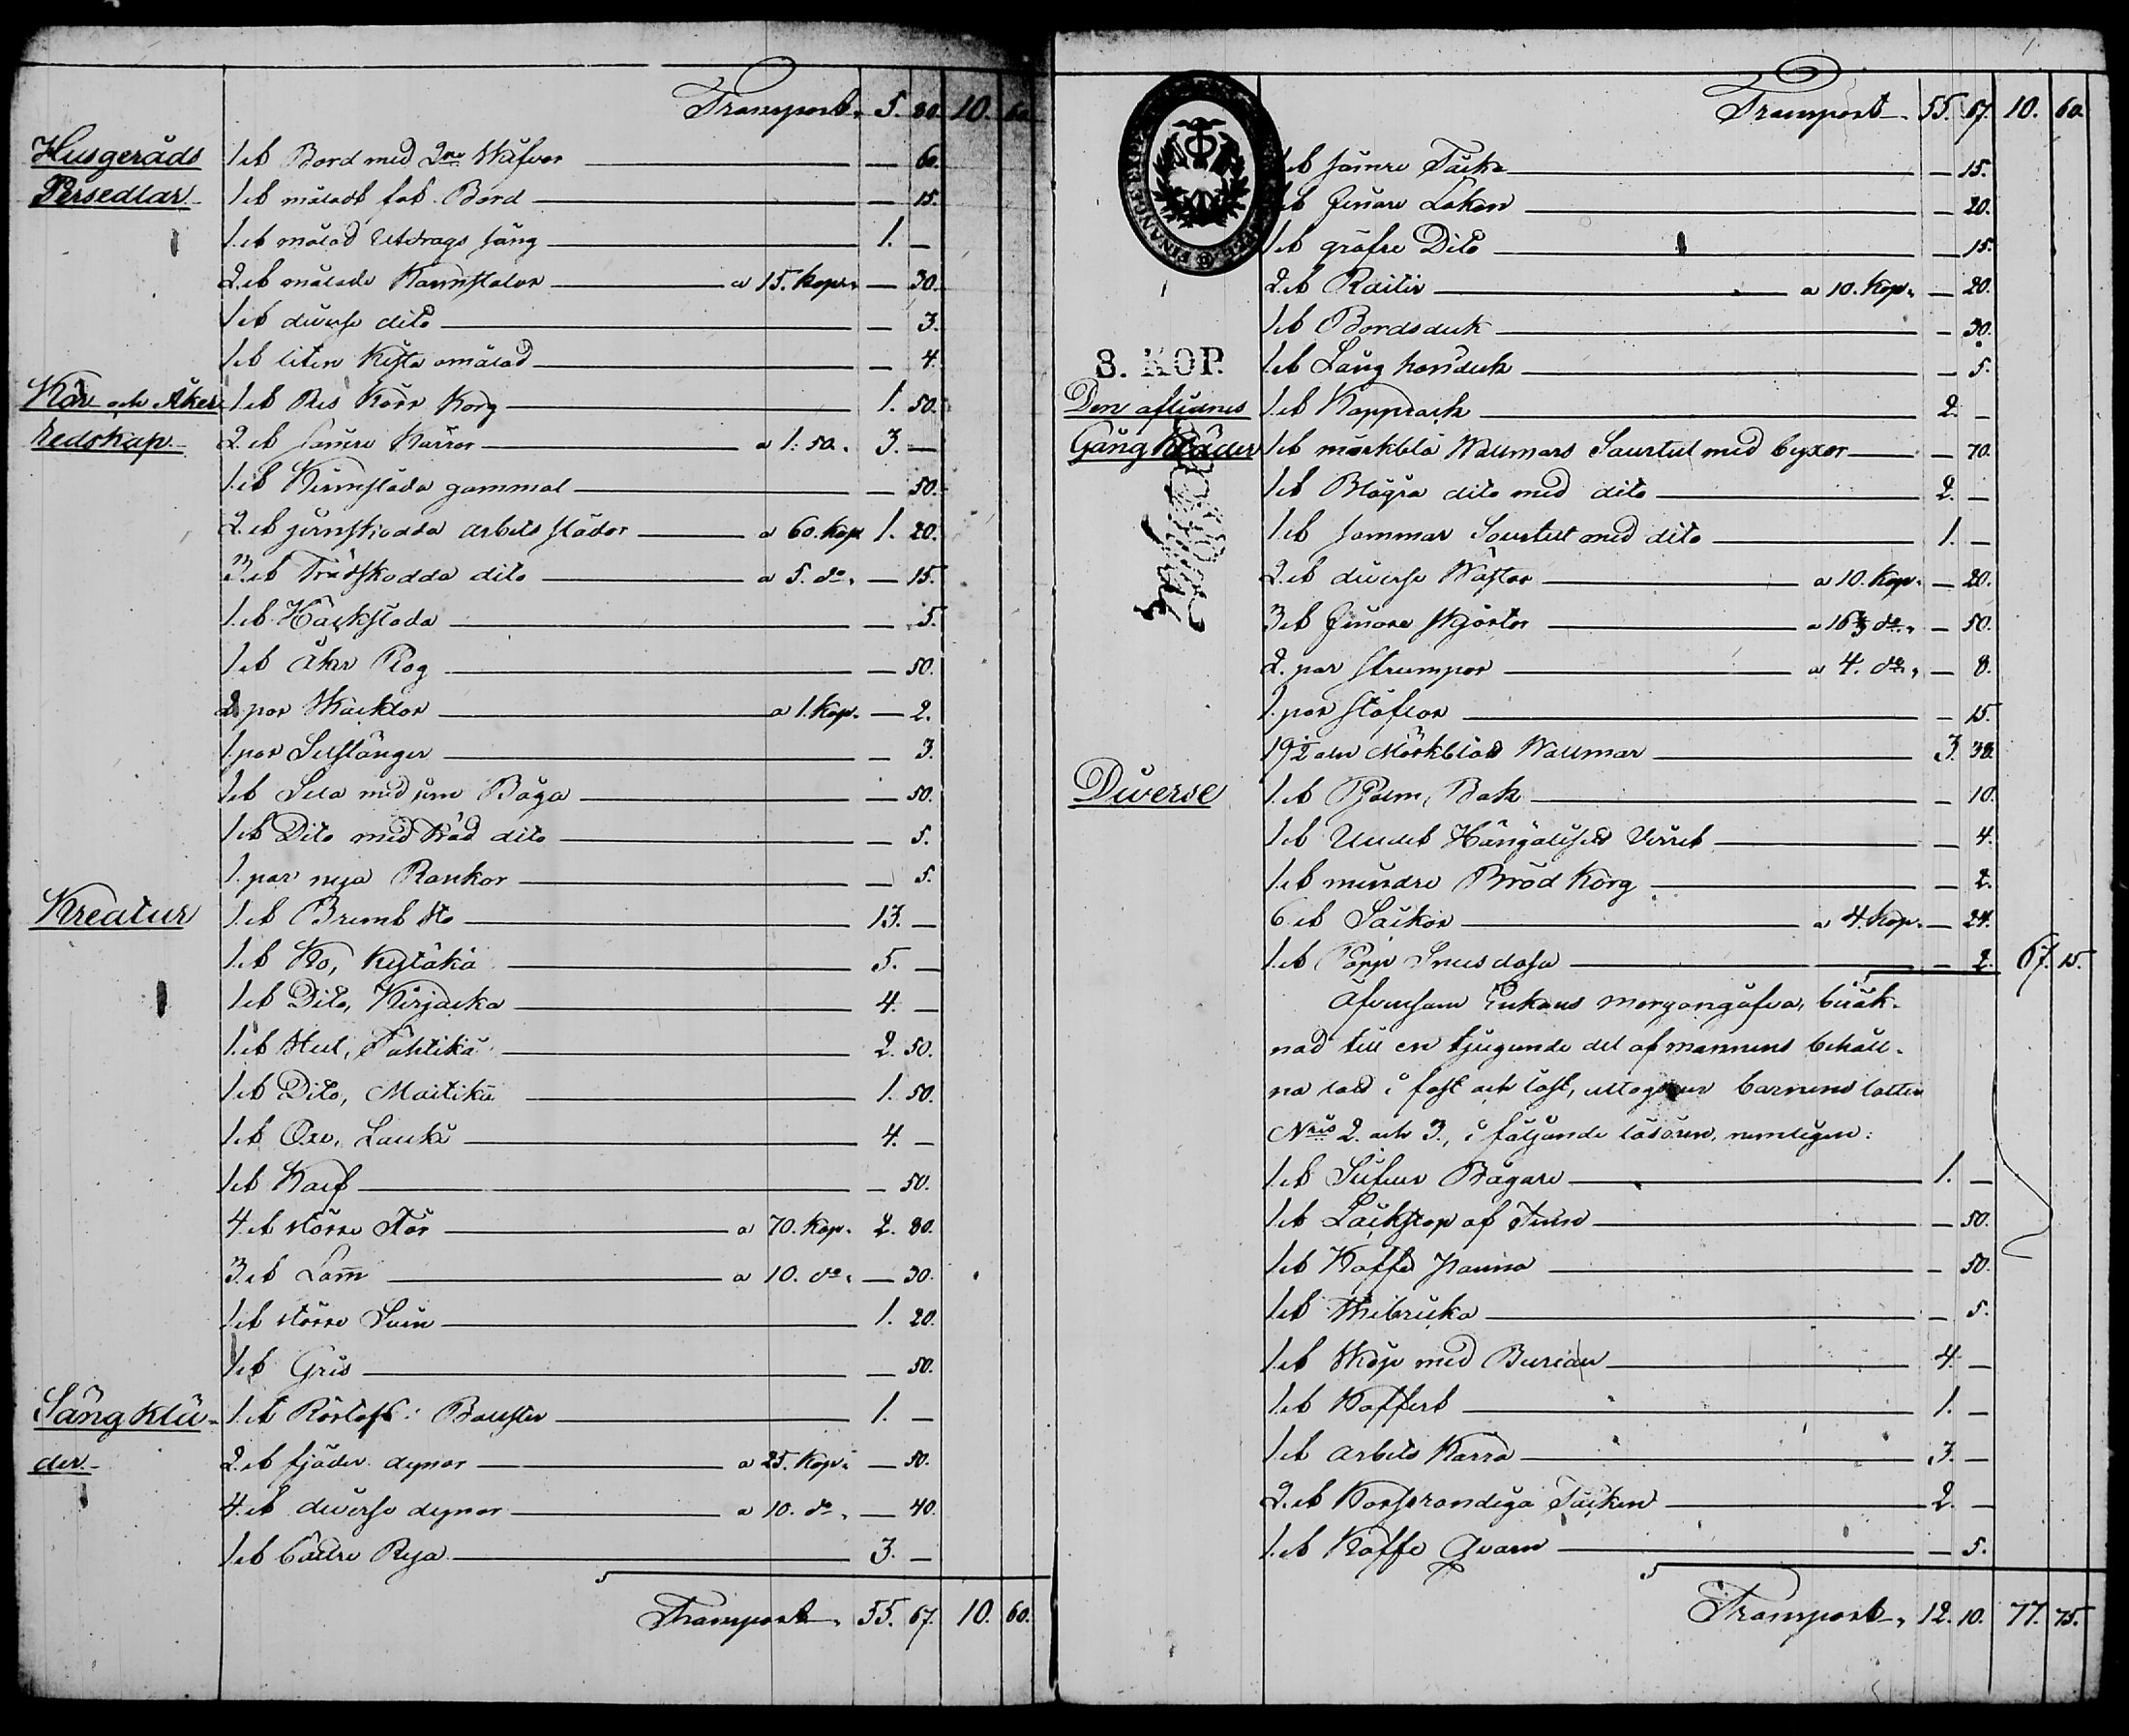 Transport. 5. 80. 10. 60.
Husgeråds 1. st Bord med 2ne Skifvor — 60.
Persedlar. 1. st måladt fat Bord — 15.
1. st målad Utdrags säng 1. —
2. st målade Karmstolar a 15. Kop. — 30.
1. st diverse dito — 3.
1. st liten Kista omålad — 4.
Kör och Åker 1. st Res Kärr Korg 1. 50.
redskap. 2. st sämre Kärror a 1. 50. 3. —
1. st Kirmsläda gammal — 50.
2. st jernskodda arbets slädor a 60. Kop 1. 20.
3. st Trädskodda dito a 5. do. — 15.
1. st Häcksläda — 5.
1. st Åker Plog — 50.
2. par Skacklor a 1. Kop. — 2.
1. par Selstänger — 3.
1. st Sela med jern Båga — 50.
1. st Dito med träd dito — 5.
1. par nya Rankor — 5.
Kreatur 1. st Brunt Sto 13. —
1. st Ko, Kystäkä 5. —
1. st Dito, Kirjacka 4. —
1. st Stut, Tähtikä 2. 50.
1. st Dito, Maitikä 1. 50.
1. st Oxe, Lauki 4. —
1. st Kalf — 50.
4. st större Får a 70. Kop. 2. 80.
3. st Lam̄ a 10. do. — 30.
1. st större Svin 1. 20.
1. st Gris — 50.
Sängklä- 1. st Bolster 1. —
der. 2. st fjäder dynor a 25. Kop. — 50.
4. st diverse dynor a 10. do. — 40.
1. st bättre Rya 3. —
Transport. 55. 67. 10. 60.
Transport. 55. 67. 10. 60.
1. st sämre Täcke — 15.
1. st finare Lakan — 20.
1. st gröfre Dito — 15.
2. st Raitir a 10. Kop. — 20.
1. st Bordsduk — 30.
8. KOP. 1. st Lång handuk — 5.
Den aflidnes 1. st Kapprock 2. —
Gång Kläder 1. st mörkblå Wallmars Surtut med byxor — 70.
1. st Blågrå dito med dito 2. —
1. st sommar Sourtut med dito 1. —
2. st diverse Wästar a 10. Kop. — 20.
3. st finare skjortor a 16 2/3 do. — 50.
2. par strumpor a 4. do. — 8.
1. par stöflor — 15.
19½ aln Mörkblå Wallmar 3. 38.
Diverse 1. st Psalm Bok — 10.
1. st Hängålysis — 4.
1. st mindre Bröd Korg — 2.
6. st Säckar a 4. Kop. — 24.
1. st Snusdosa — 2. 67. 15.
Äfvensom Enkans morgongåfva, beräk-
nad till en tjugunde del af mannens behåll-
na bo i fast och löst, utlogar barnens lotter
Nris 2. och 3., i följande lösören, nemligen:
1. st Silfver Bägare 1. —
1. st Läckstop af Tenn — 50.
1. st Kaffe panna — 50.
1. st Thebricka — 5.
1. st Skåp med Bureau 4. —
1. st Koffert 1. —
1. st arbets Kärra 3. —
2. st Korsrandiga Täcken 2. —
1. st Kaffe Qvarn — 5.
Transport. 12. 10. 77. 75.